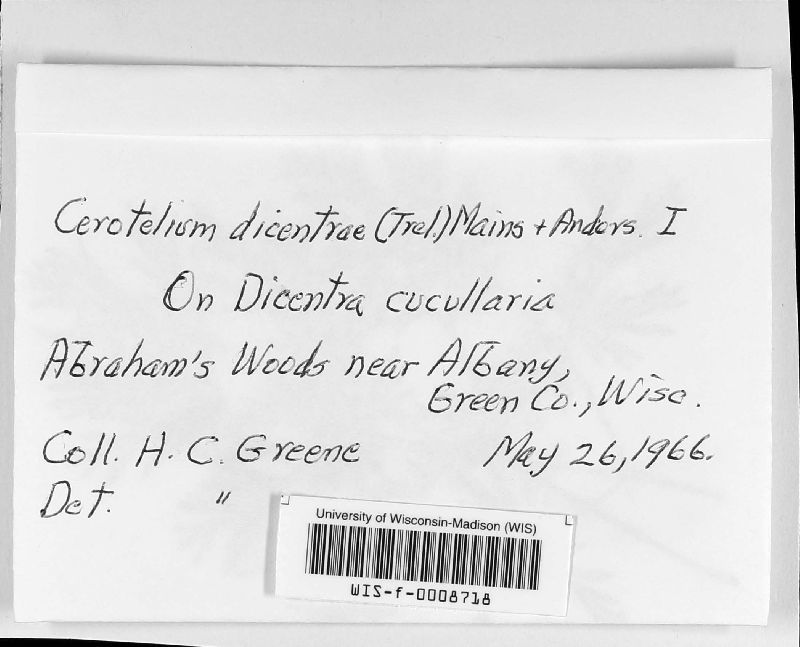 Cerotelium dicentrae (Trel.) Mains + Anders. I
On Dicentra cucullaria
Abraham's Woods near Albany,
Green Co., Wisc.
Coll. H. C. Greene May 26, 1966.
Det. "
University of Wisconsin-Madison (WIS)
WIS-f-0008718